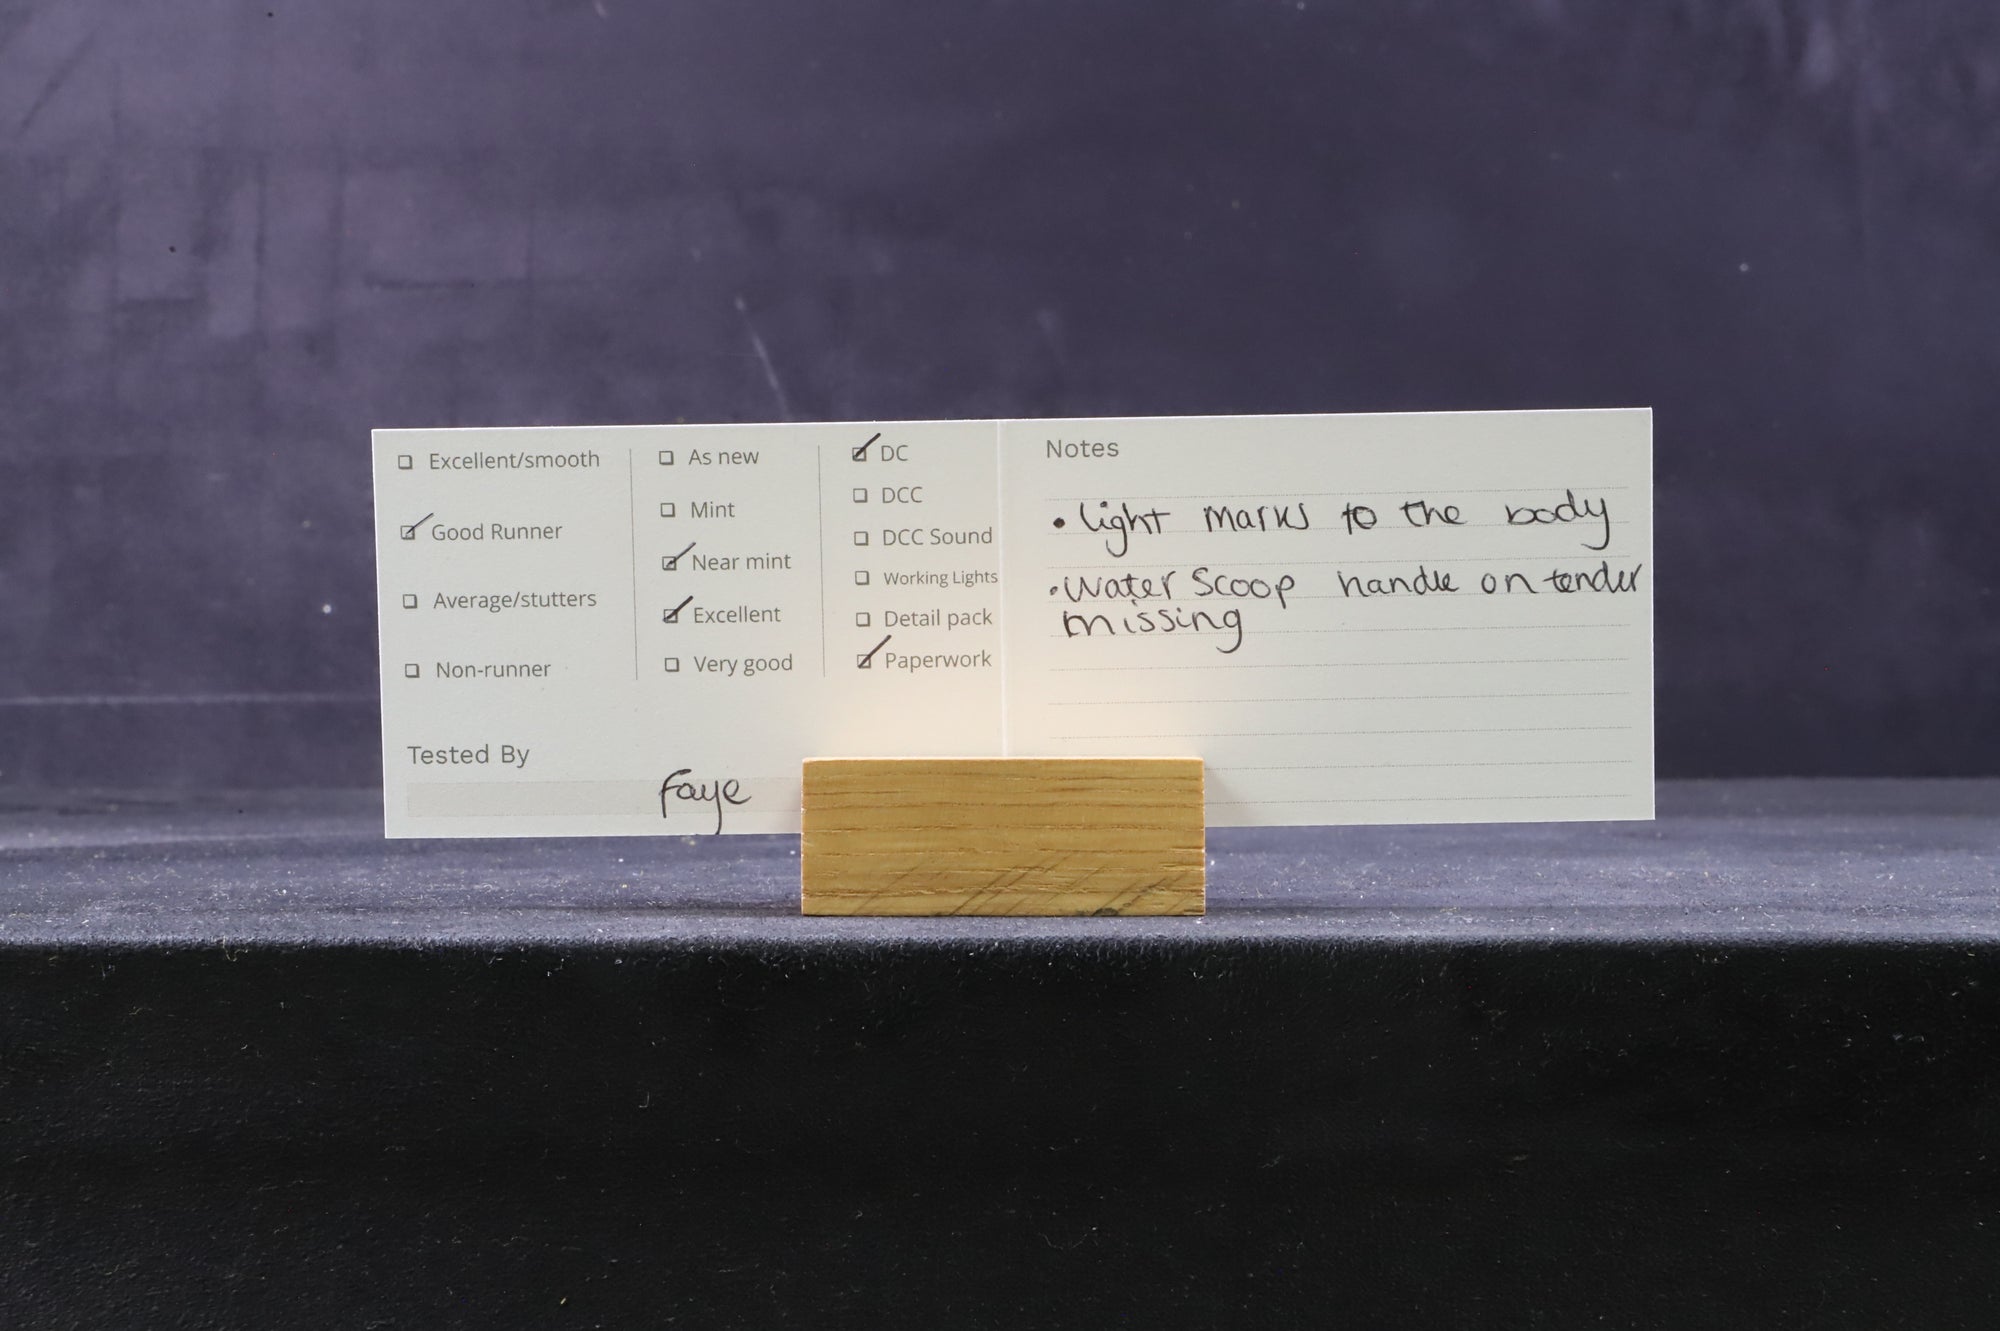 Excellent/smooth
Good Runner
Average/stutters
Non-runner
As new
Mint
Near mint
Excellent
Very good
DC
DCC
DCC Sound
Working Lights
Detail pack
Paperwork
Tested By
Faye
Notes
• light marks to the body
• Water Scoop handle on tender
missing